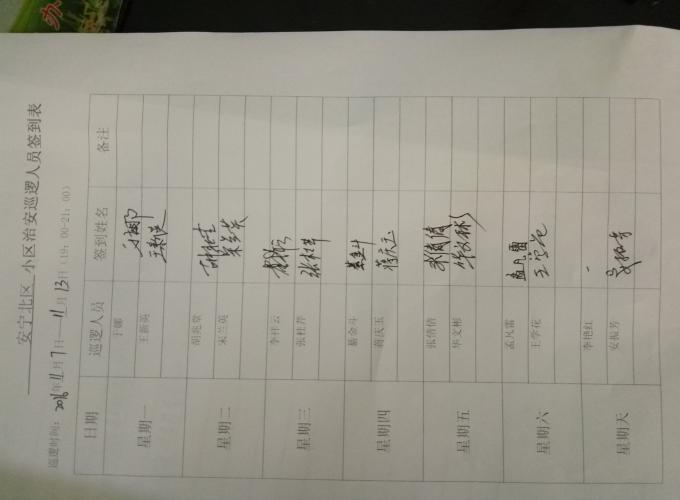 安宁北区 小区治安巡逻人员签到表
巡逻时间:2016年11月7日—11月13日(19:00-21:00)
日期 巡逻人员 签到姓名 备注
星期一 于娜 于娜
王新英 王新英
星期二 胡兆堂
宋兰英 宋兰英
星期三 李祥云
张桂芹 张桂芹
星期四 綦金斗 綦金斗
蒋庆玉 蒋庆玉
星期五 张倩倩 张倩倩
华文彬 华文彬
星期六 孟凡雷 孟凡雷
王学花 王学花
星期天 李艳红
安振芳 安振芳